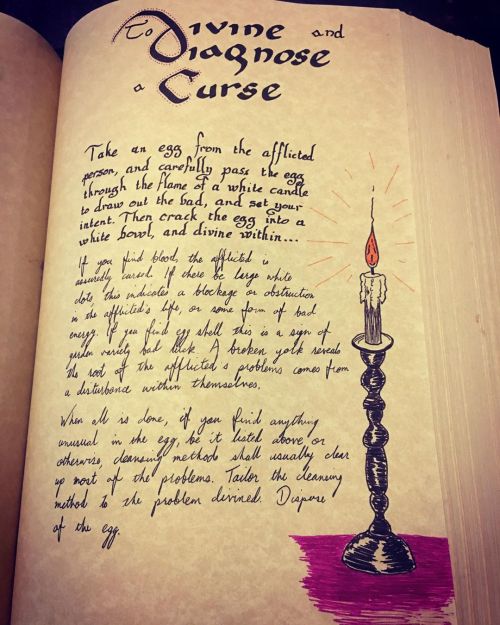 To Divine and
Diagnose
a Curse
Take an egg from the afflicted
person, and carefully pass the egg
through the flame of a white candle
to draw out the bad, and set your
intent. Then crack the egg into a
white bowl, and divine within...
If you find blood, the afflicted is
assuredly cursed. If there be large white
dots, this indicates a blockage or obstruction
in the afflicted's life, or some form of bad
energy. If you find egg shell this is a sign of
garden variety bad luck. A broken yolk reveals
the root of the afflicted's problems comes from
a disturbance within themselves.
When all is done, if you find anything
unusual in the egg, be it listed above or
otherwise, cleansing methods shall usually clear
up most of the problems. Tailor the cleansing
method to the problem divined. Dispose
of the egg.